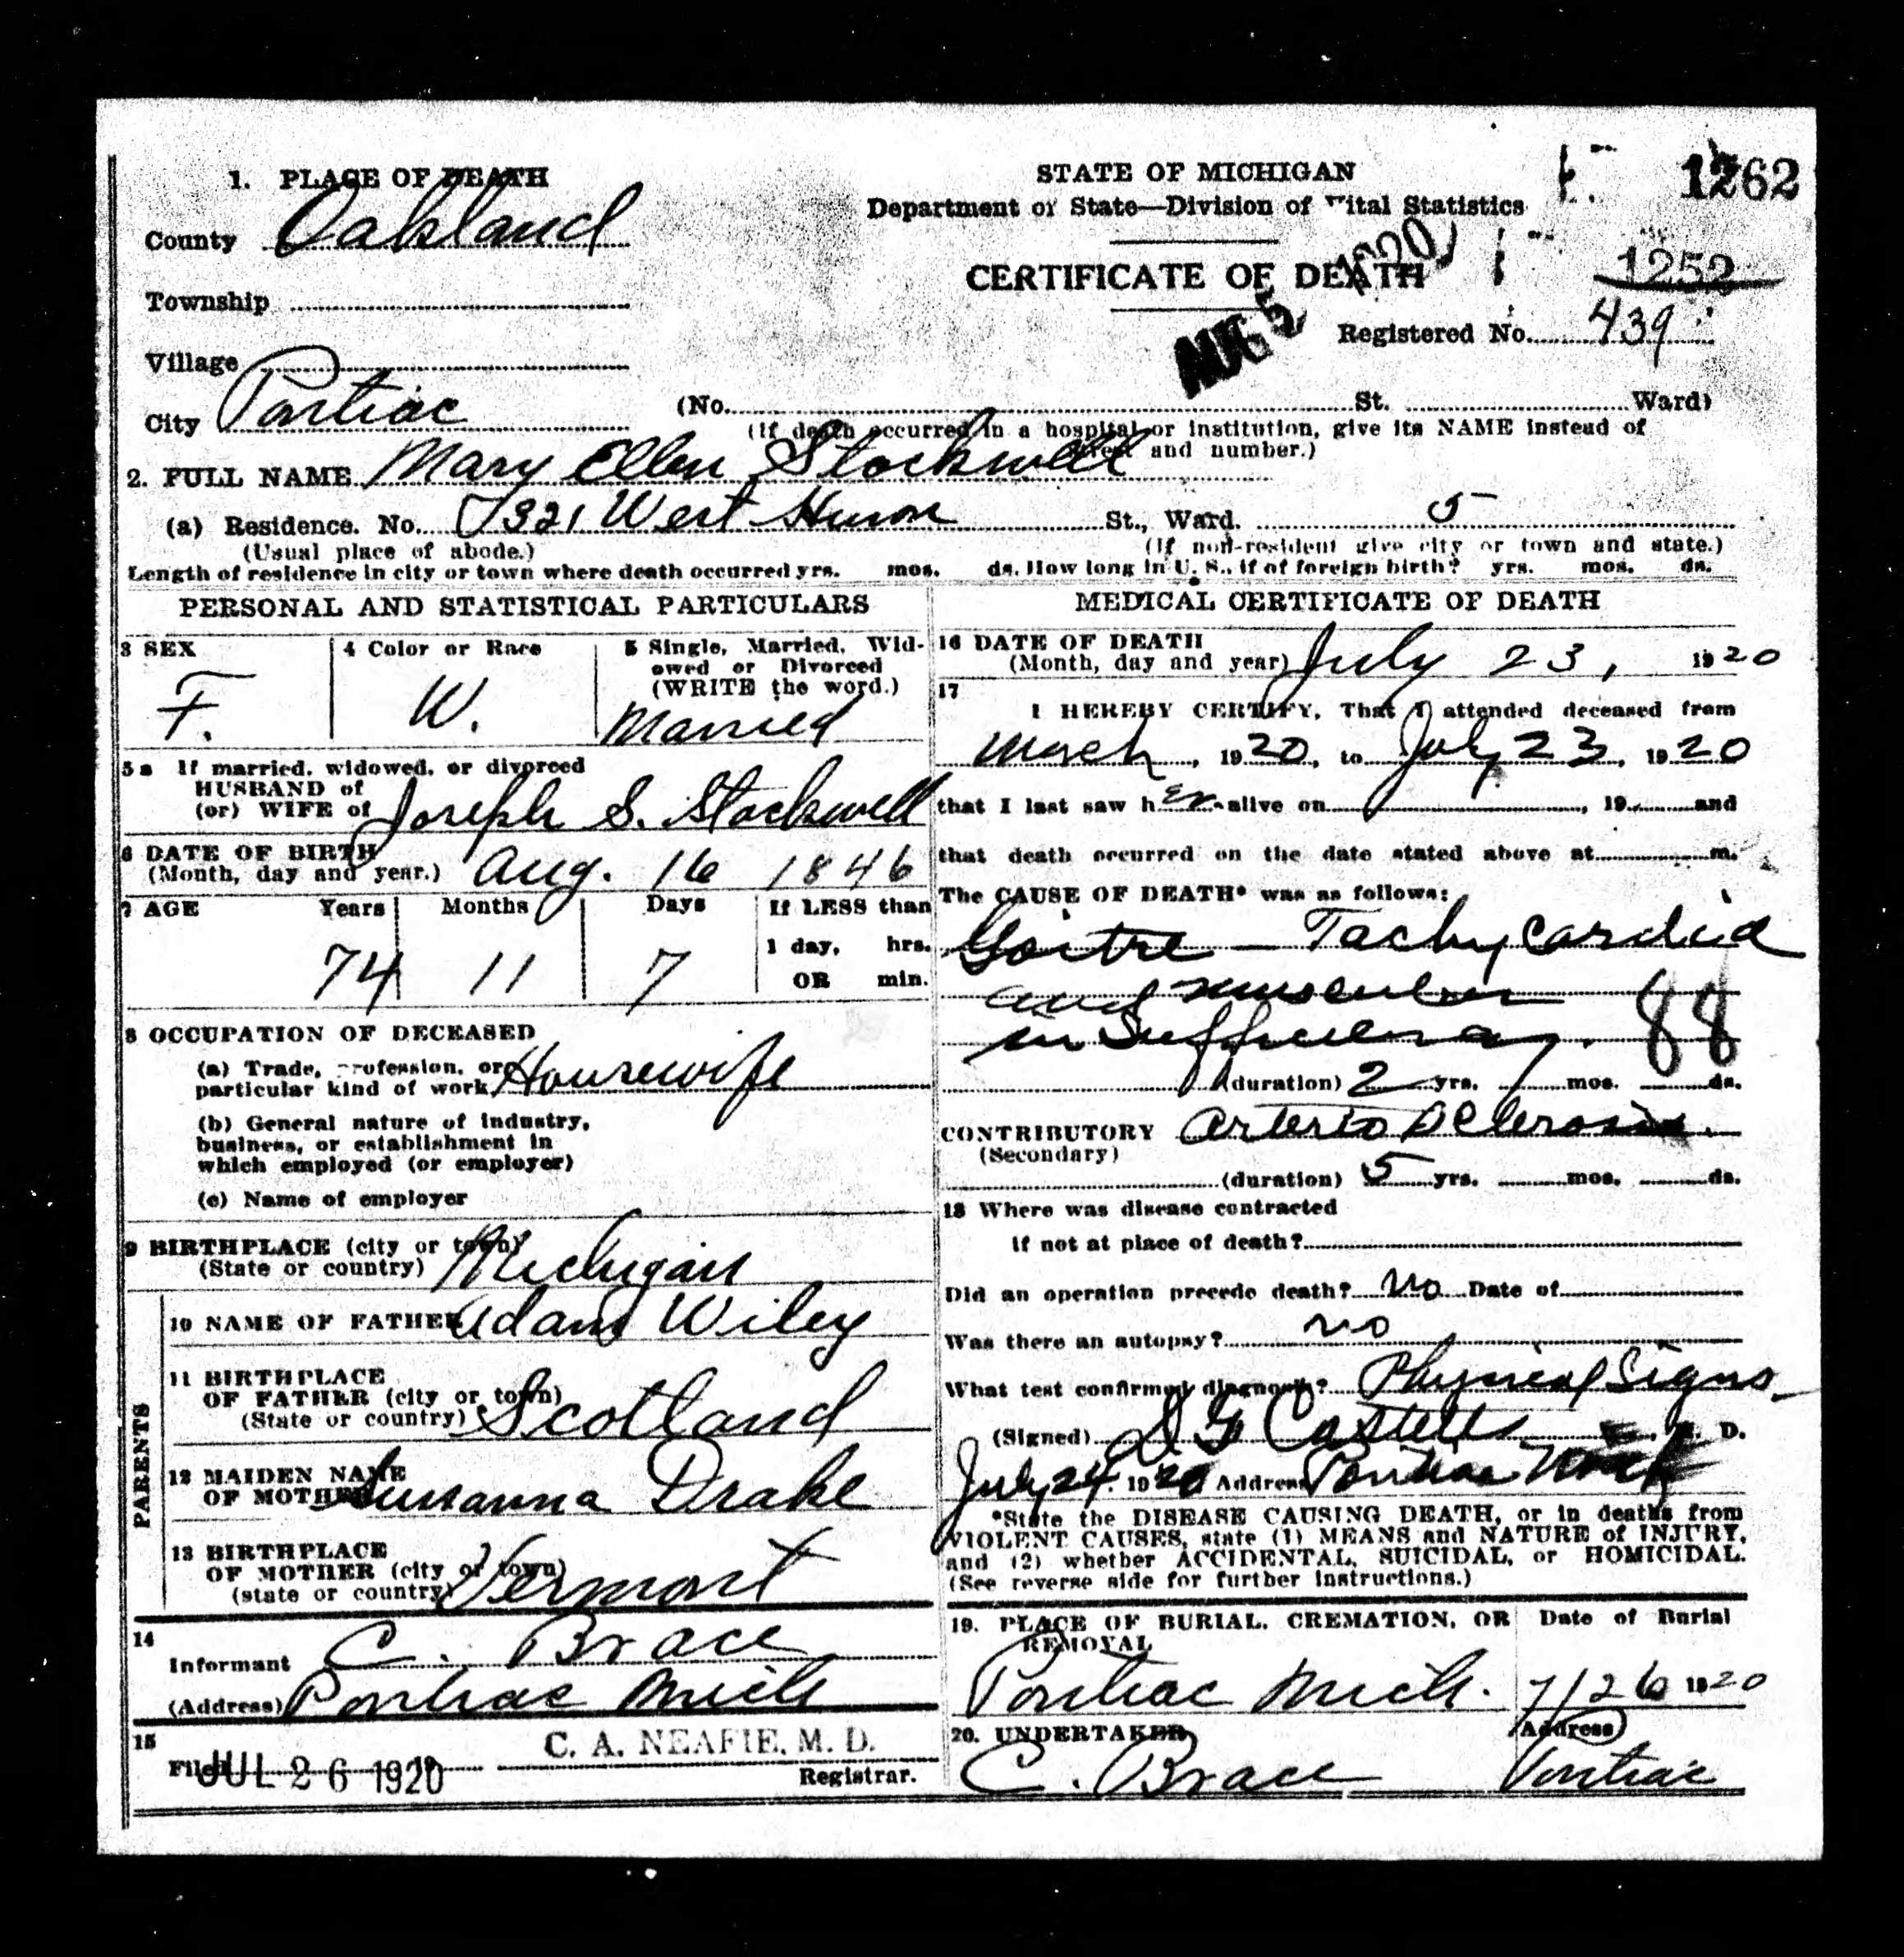 1. PLACE OF DEATH
County Oakland
Township
Village
City Pontiac
STATE OF MICHIGAN
Department of State—Division of Vital Statistics
CERTIFICATE OF DEATH
AUG 5 1920
1262
1252
Registered No. 439
(No. St. Ward)
(If death occurred in a hospital or institution, give its NAME instead of street and number.)
2. FULL NAME Mary Ellen Stockwell
(a) Residence. No. 321 West Huron St., Ward. 5
(Usual place of abode.) (If non-resident give city or town and state.)
Length of residence in city or town where death occurred yrs. mos. ds. How long in U. S., if of foreign birth? yrs. mos. ds.
PERSONAL AND STATISTICAL PARTICULARS
3 SEX
F.
4 Color or Race
W.
5 Single, Married, Widowed or Divorced
(WRITE the word.)
Married
5a If married, widowed, or divorced
HUSBAND of
(or) WIFE of Joseph S. Stockwell
6 DATE OF BIRTH
(Month, day and year.) Aug. 16 1846
7 AGE Years Months Days If LESS than
1 day, hrs.
74 11 7 OR min.
8 OCCUPATION OF DECEASED
(a) Trade, profession, or
particular kind of work Housewife
(b) General nature of industry,
business, or establishment in
which employed (or employer)
(c) Name of employer
9 BIRTHPLACE (city or town)
(State or country) Michigan
PARENTS
10 NAME OF FATHER Adam Wiley
11 BIRTHPLACE
OF FATHER (city or town)
(State or country) Scotland
12 MAIDEN NAME
OF MOTHER Susanna Drake
13 BIRTHPLACE
OF MOTHER (city or town)
(state or country) Vermont
14
Informant C. Brace
(Address) Pontiac Mich
15
Filed JUL 26 1920 C. A. NEAFIE, M. D.
Registrar.
MEDICAL CERTIFICATE OF DEATH
16 DATE OF DEATH
(Month, day and year) July 23, 1920
17
I HEREBY CERTIFY, That I attended deceased from
March, 1920, to July 23, 1920
that I last saw her alive on , 19 and
that death occurred on the date stated above at m.
The CAUSE OF DEATH* was as follows:
Goitre — Tachycardia
and muscular
insufficiency. 88
(duration) 2 yrs. mos. ds.
CONTRIBUTORY Arterio Sclerosis.
(Secondary)
(duration) 5 yrs. mos. ds.
18 Where was disease contracted
if not at place of death?
Did an operation precede death? No Date of
Was there an autopsy? no
What test confirmed diagnosis? Physical Signs
(Signed) Castell M. D.
July 24, 1920 Address Pontiac Mich
*State the DISEASE CAUSING DEATH, or in deaths from
VIOLENT CAUSES, state (1) MEANS and NATURE of INJURY,
and (2) whether ACCIDENTAL, SUICIDAL, or HOMICIDAL.
(See reverse side for further instructions.)
19. PLACE OF BURIAL, CREMATION, OR
REMOVAL
Pontiac Mich.
Date of Burial
7/26 1920
20. UNDERTAKER
C. Brace
Address
Pontiac